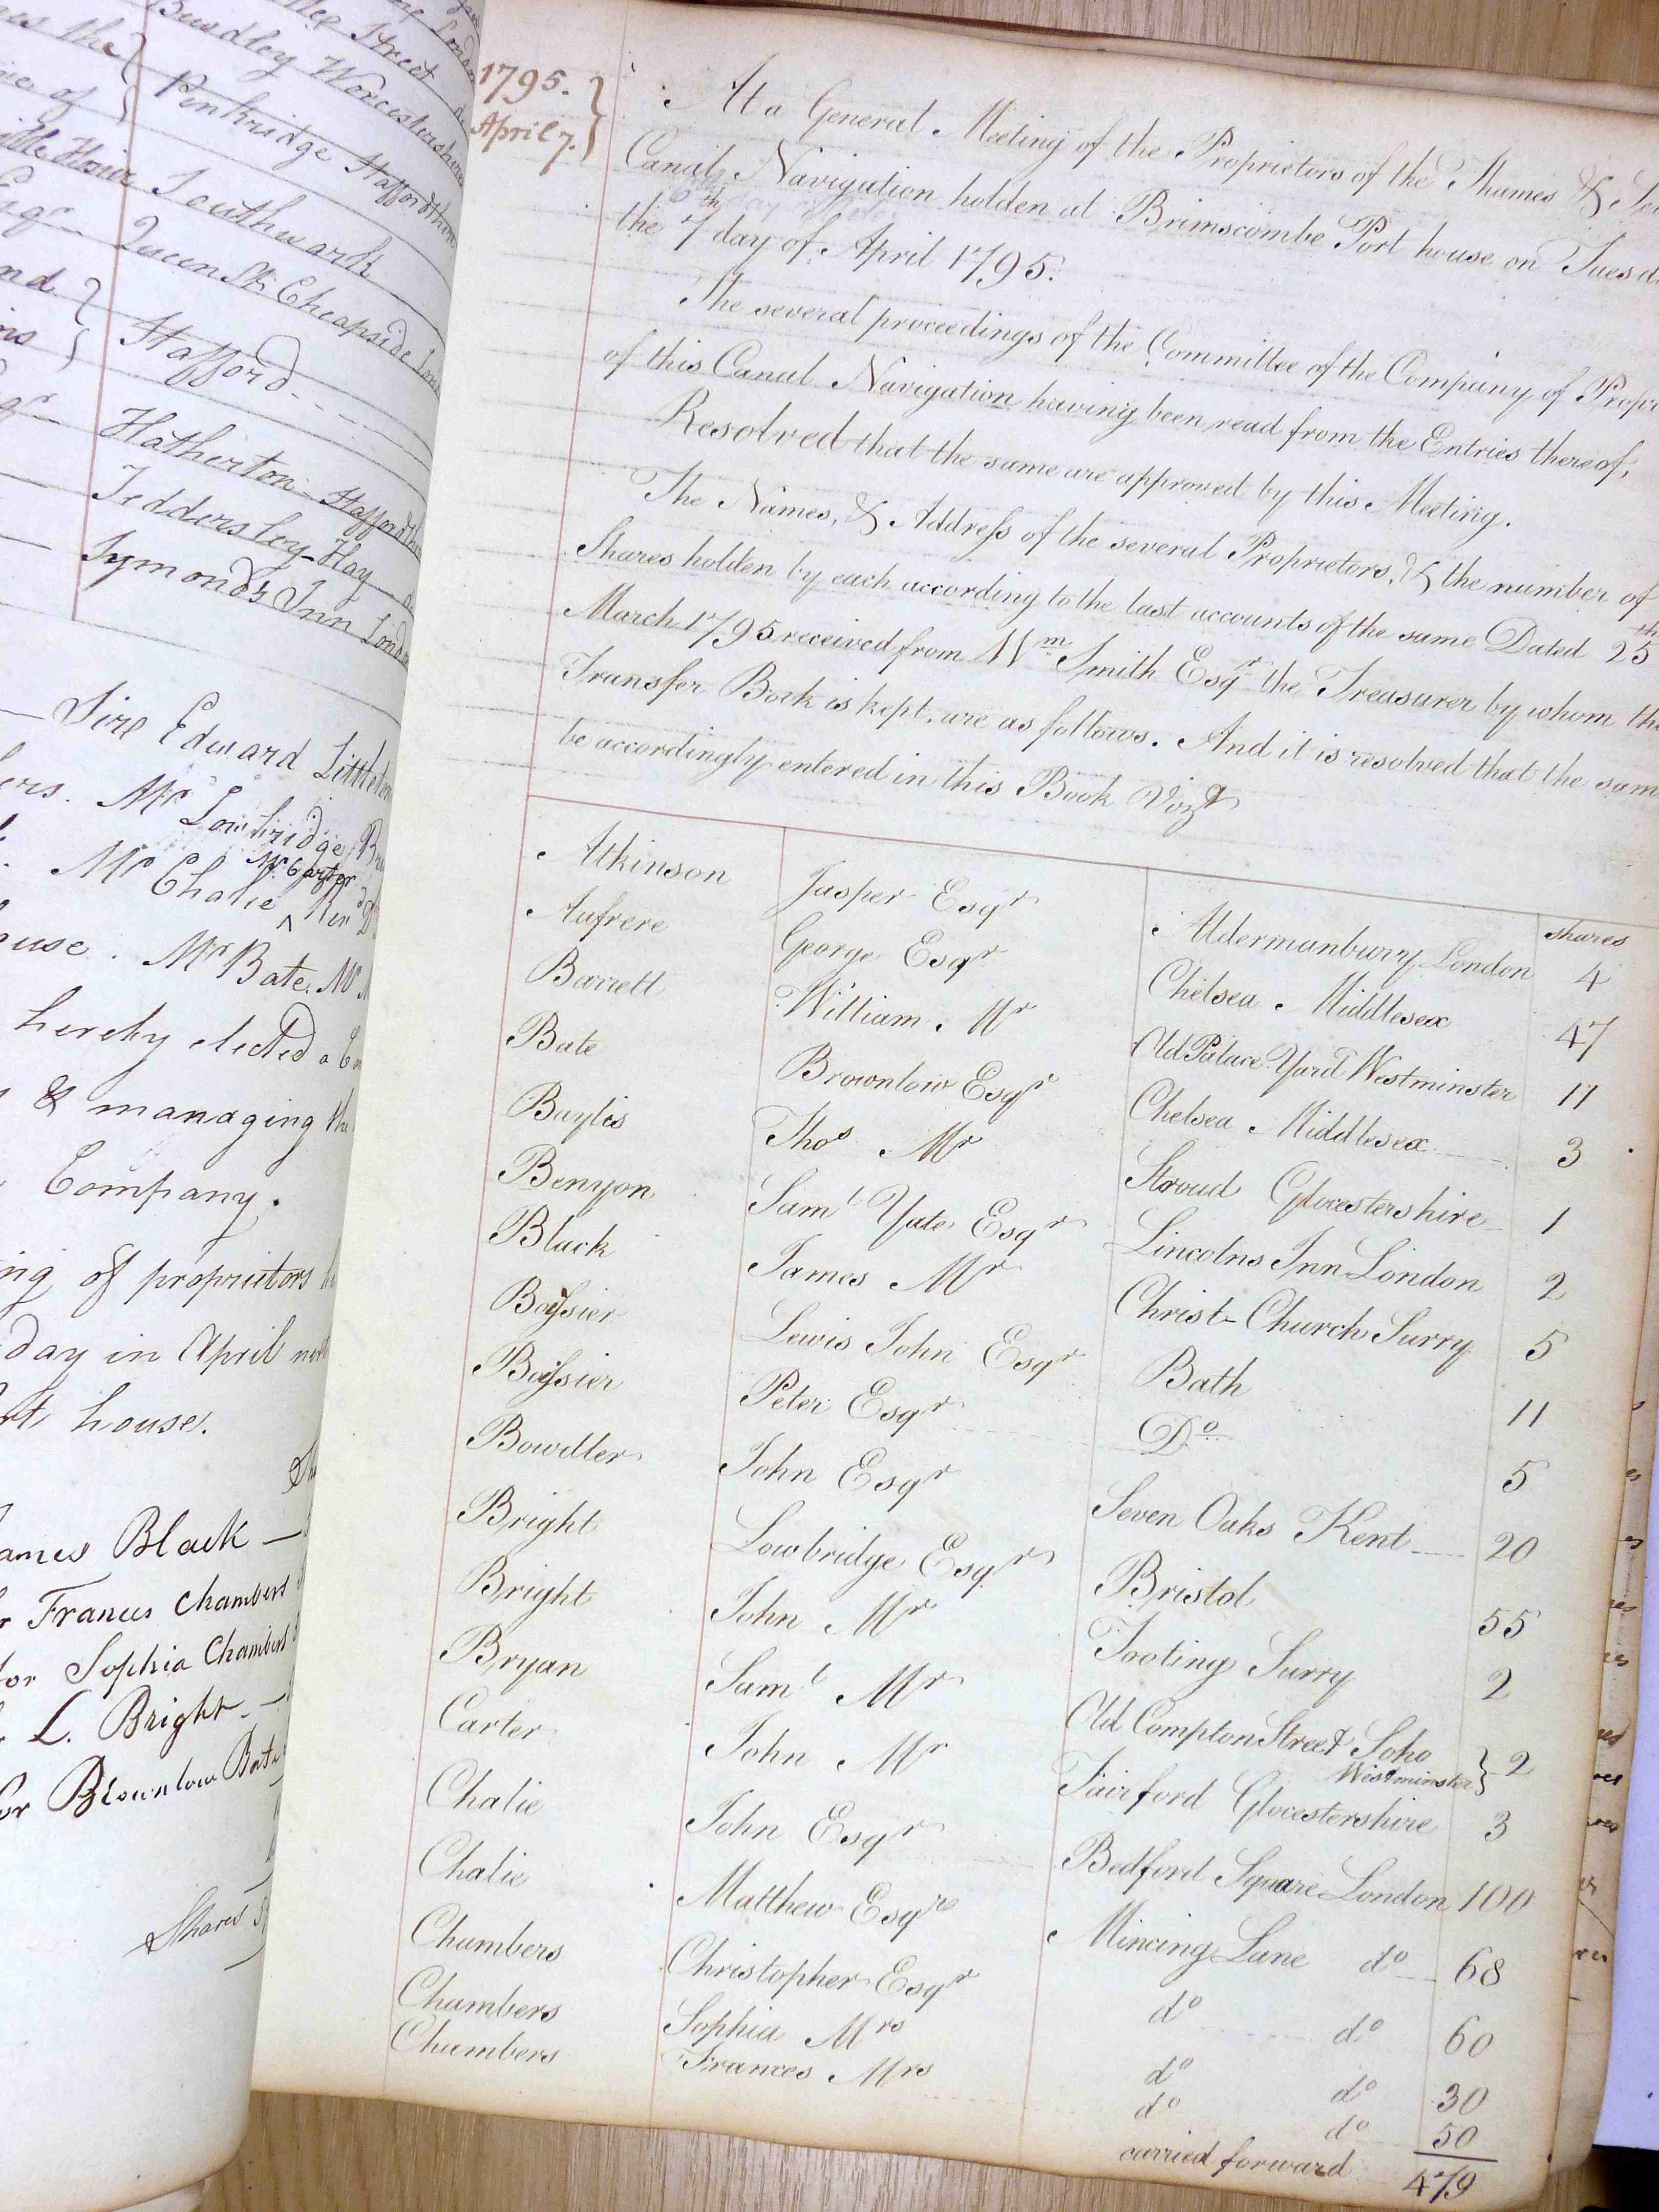 Bewdley Worcestershire
Penkridge Staffordshire
Southwark
Queen St. Cheapside
Stafford
Hatherton Staffordshire
Teddersley Hay
Symonds Inn London
Sire Edward Littleton
Mr Lowbridge
Mr Carter
Mr Chalie
use. Mr Bate. Mr
hereby elected a
& managing the
Company.
ng of proprietors
day in April next
house.
ames Black —
Frances Chambers
for Sophia Chambers
L. Bright —
or Brownlow Bate
Shares
1795.
April 7.
At a General Meeting of the Proprietors of the Thames &
Canal Navigation holden at Brimscombe Port house on Tuesd
the 7th day of April 1795.
The several proceedings of the Committee of the Company of Propr
of this Canal Navigation having been read from the Entries thereof,
Resolved that the same are approved by this Meeting.
The Names, & Address of the several Proprietors, & the number of
Shares holden by each according to the last accounts of the same Dated 25th
March 1795 received from Wm Smith Esqr the Treasurer by whom the
Transfer Book is kept, are as follows. And it is resolved that the same
be accordingly entered in this Book Vizt
shares
Atkinson Jasper Esqr Aldermanbury London 4
Aufrere George Esqr Chelsea Middlesex 47
Barrett William Mr Old Palace Yard Westminster 11
Bate Brownlow Esqr Chelsea Middlesex 3
Baylis Thos Mr Stroud Glocestershire 1
Benyon Saml Yate Esqr Lincolns Inn London 2
Black James Mr Christ-Church Surry 5
Boissier Lewis John Esqr Bath 11
Boissier Peter Esqr Do 5
Bowdler John Esqr Seven Oaks Kent 20
Bright Lowbridge Esqr Bristol 55
Bright John Mr Tooting Surry 2
Bryan Saml Mr Old Compton Street Soho Westminster } 2
Carter John Mr Fairford Glocestershire 3
Chalie John Esqr Bedford Square London 100
Chalie Matthew Esqre Mincing Lane do 68
Chambers Christopher Esqr do do 60
Chambers Sophia Mrs do do 30
Chambers Frances Mrs do do 50
carried forward 479